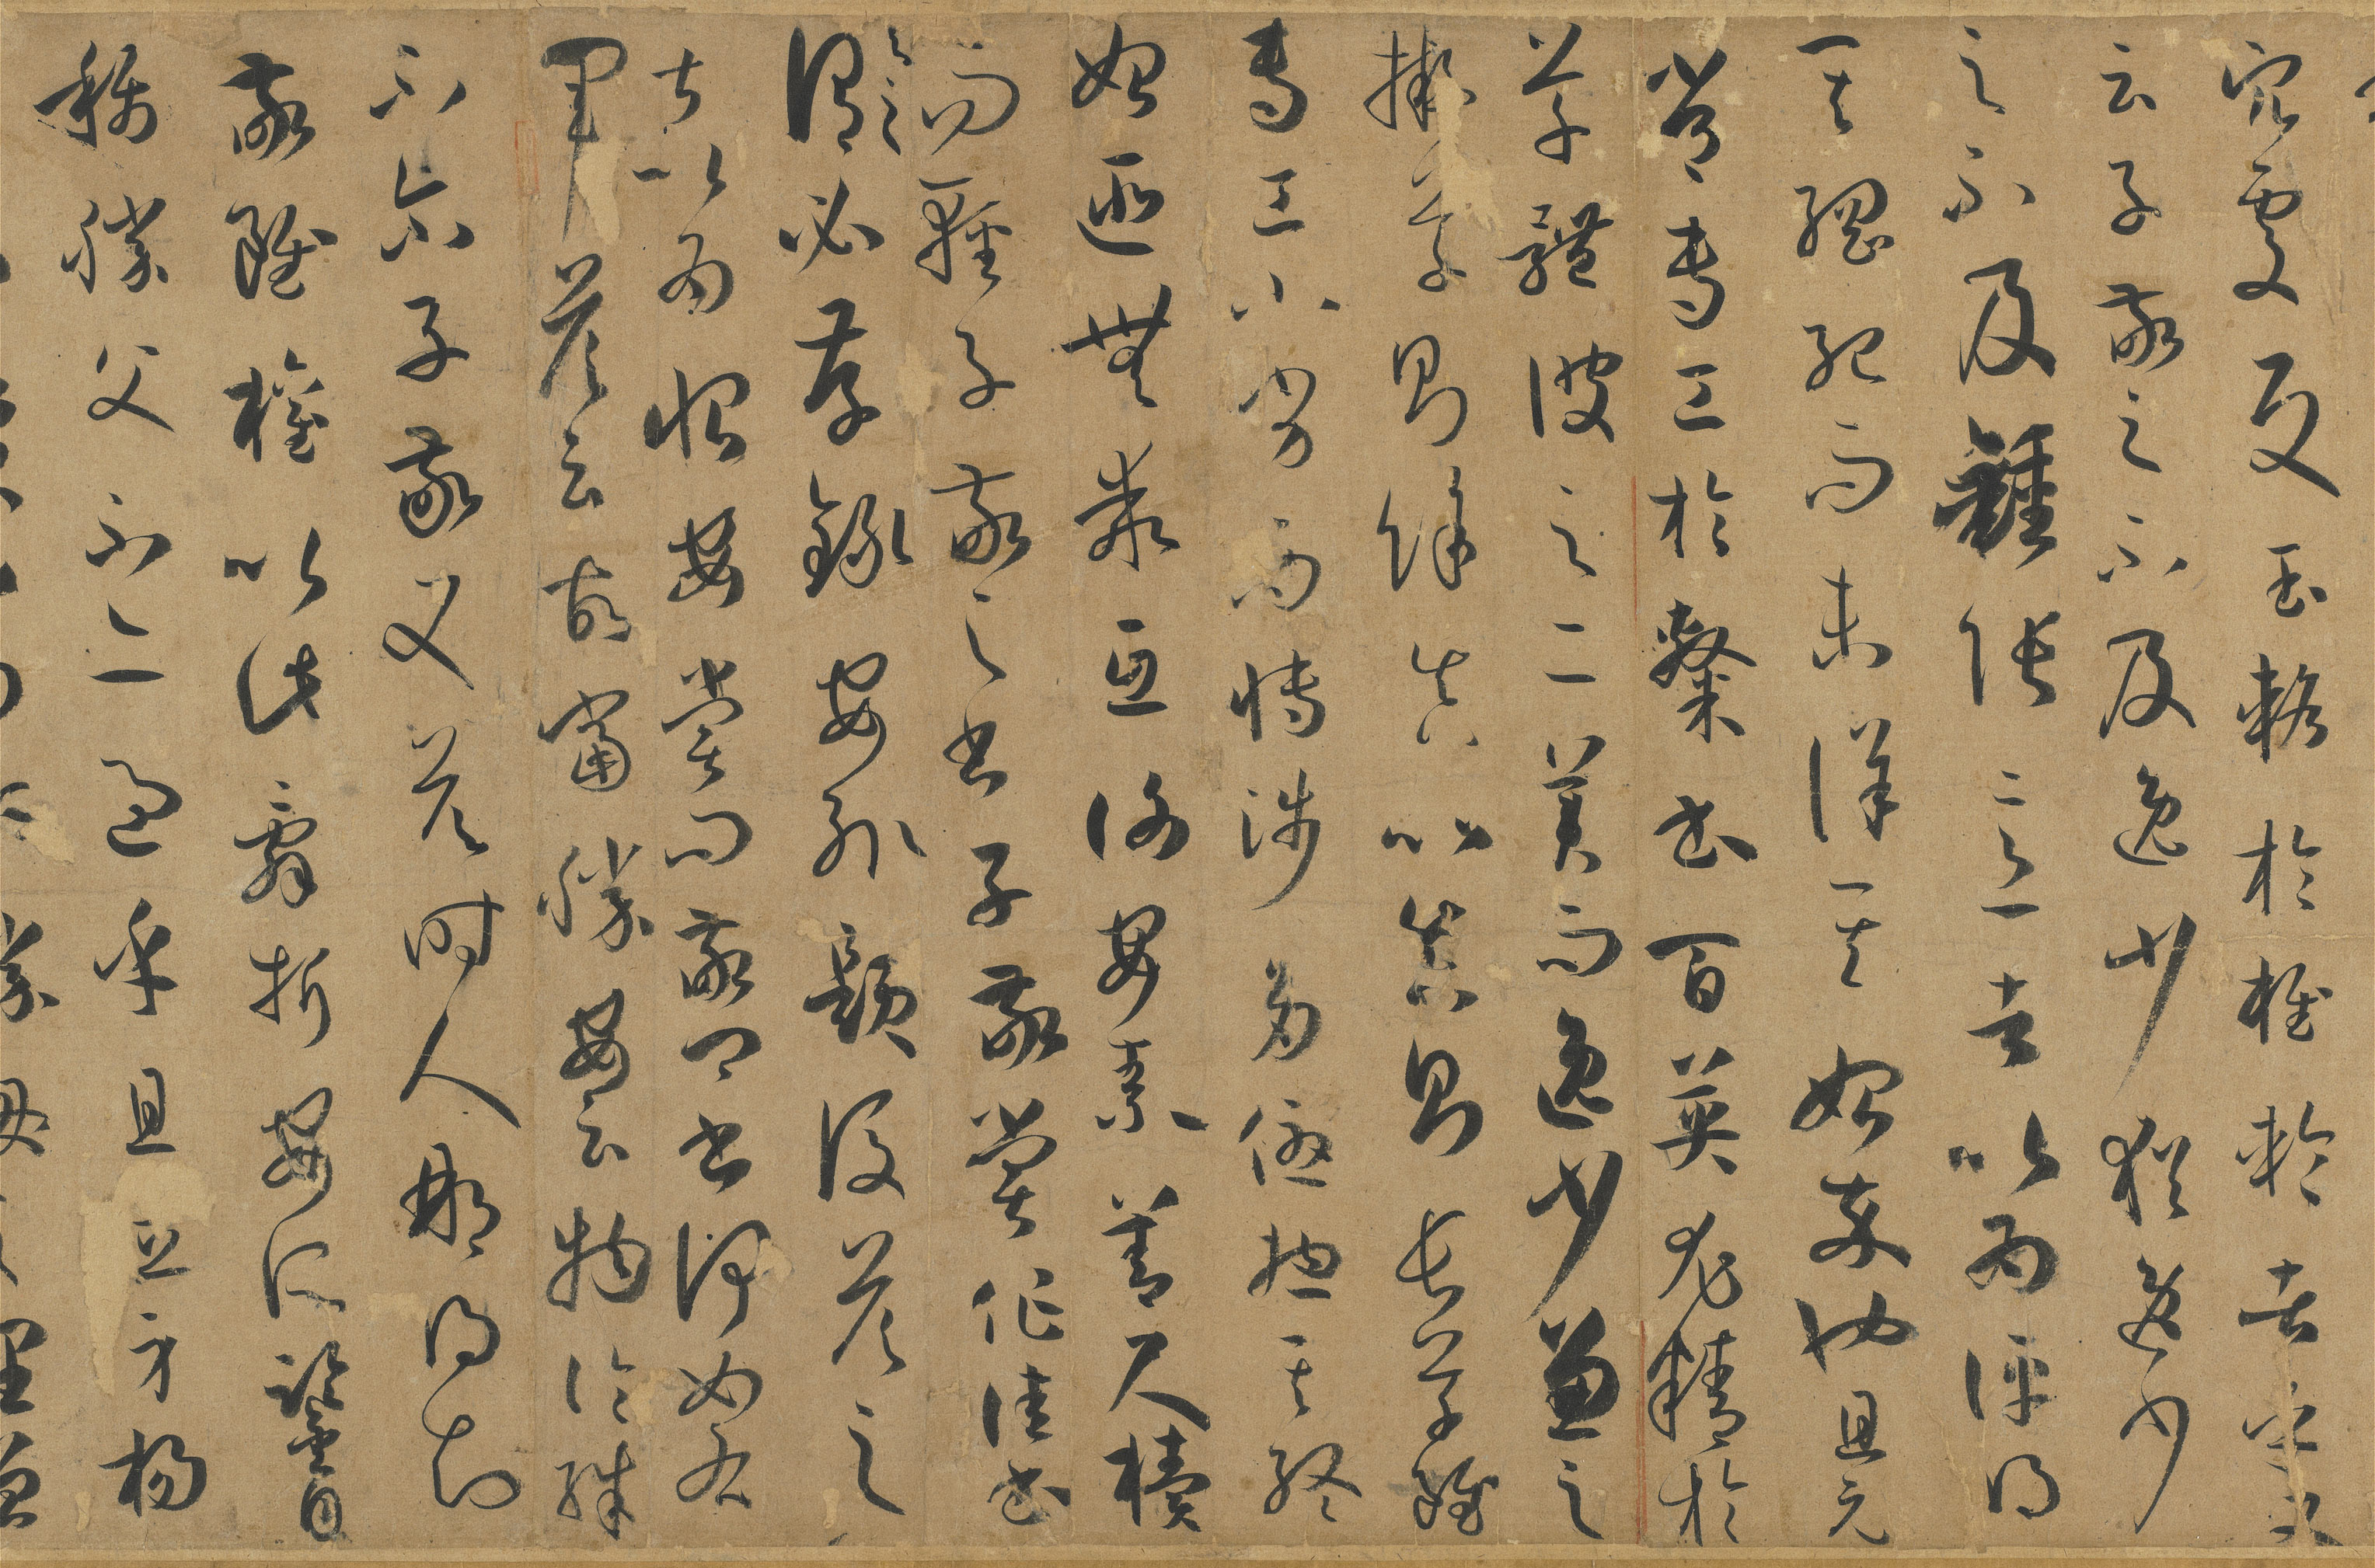 穴處反玉輅於椎輪者乎又
云子敬之不及逸少猶逸少
之不及鍾張意者以為評得
其綱紀而未詳其始卒也且元
常專工於隸書百英尤精於
草體彼之二美而逸少兼之
擬草則餘真比真則長草雖
專工小劣而博涉多優揔其終
始匪無乖互謝安素善尺櫝
而輕子敬之書子敬嘗作佳書
與之
謂必存錄安輒題後答之
甚以為恨安嘗問敬卿書何如右
軍答云故當勝安云物論殊
不尒子敬又答時人那得知
敬雖權以此辭折安所鑒自
稱勝父不亦過乎且立身揚